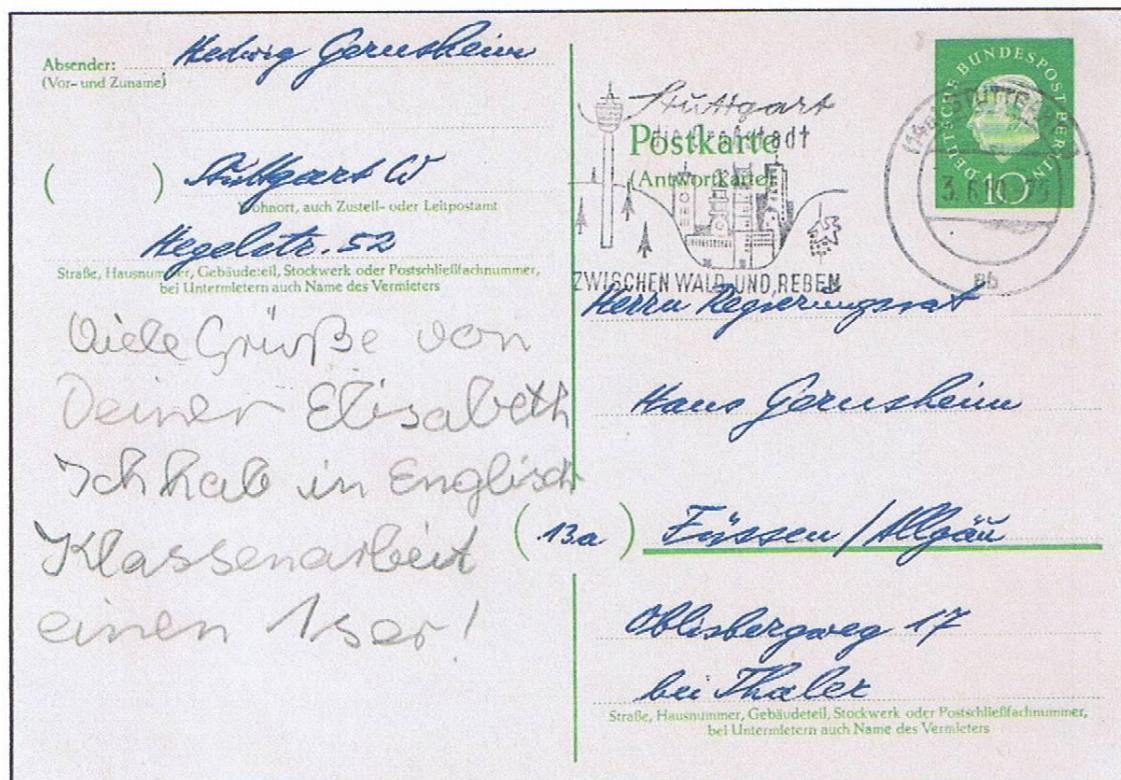 Absender: Hedwig Gernsheim
(Vor- und Zuname)
( ) Stuttgart W
Wohnort, auch Zustell- oder Leitpostamt
Hegelstr. 52
Straße, Hausnummer, Gebäudeteil, Stockwerk oder Postschließfachnummer,
bei Untermietern auch Name des Vermieters
Viele Grüße von
Deiner Elisabeth
Ich hab in Englisch
Klassenarbeit
einen 1ser!
Stuttgart
die Großstadt
ZWISCHEN WALD UND REBEN
Postkarte
(Antwortkarte)
DEUTSCHE BUNDESPOST BERLIN
10
STUTTGART
3.6.60
Herrn Regierungsrat
Hans Gernsheim
(13a) Füssen/Allgäu
bei Thaler
Straße, Hausnummer, Gebäudeteil, Stockwerk oder Postschließfachnummer,
bei Untermietern auch Name des Vermieters